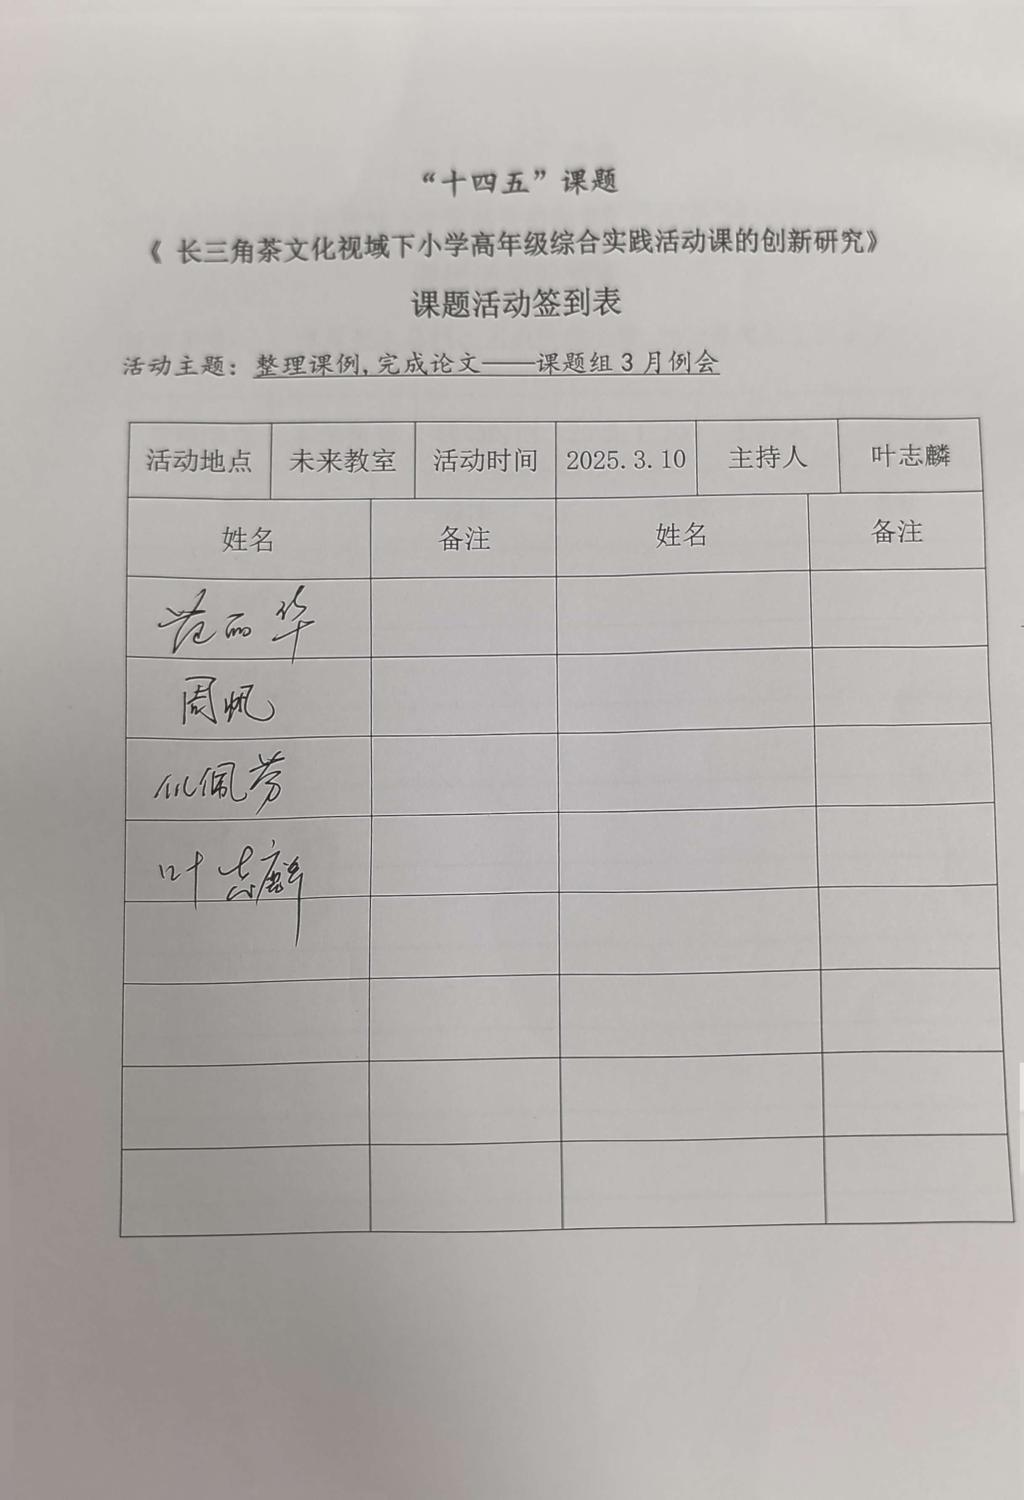 “十四五”课题
《 长三角茶文化视域下小学高年级综合实践活动课的创新研究》
课题活动签到表
活动主题：整理课例,完成论文——课题组 3 月例会
活动地点 未来教室 活动时间 2025.3.10 主持人 叶志麟
姓名 备注 姓名 备注
范丽华
周帆
佩芳
叶志麟